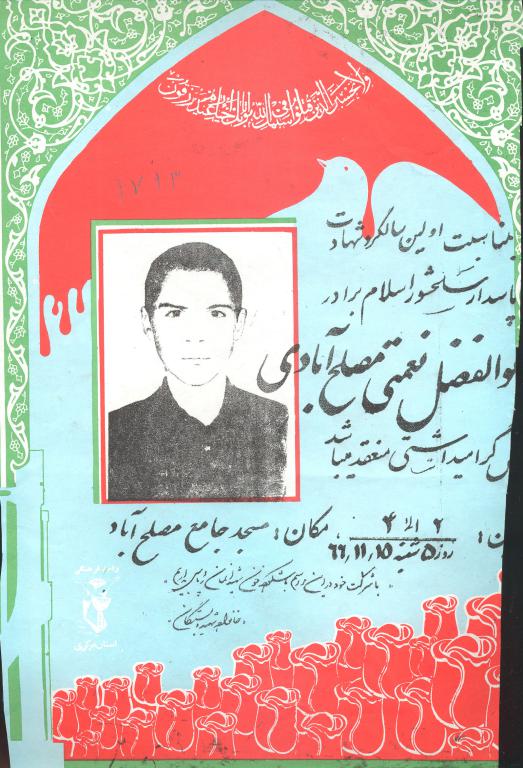 ولا تحسبن الذین قتلوا فی سبیل الله امواتا بل احیاء عند ربهم یرزقون
۱۷۱۳
بمناسبت اولین سالگرد شهادت
پاسدار سلحشور اسلام برادر
بوالفضل نعمتی مصلح آبادی
گرامیداشتی منعقد میباشد
۲ الی ۴
روز ۵ شنبه ۶۶,۱۱,۱۵
مکان: مسجد جامع مصلح آباد
با شرکت خود در این مراسم
خون شهدایمان را پاس میداریم
خانواده شهید و بستگان
استان مرکزی